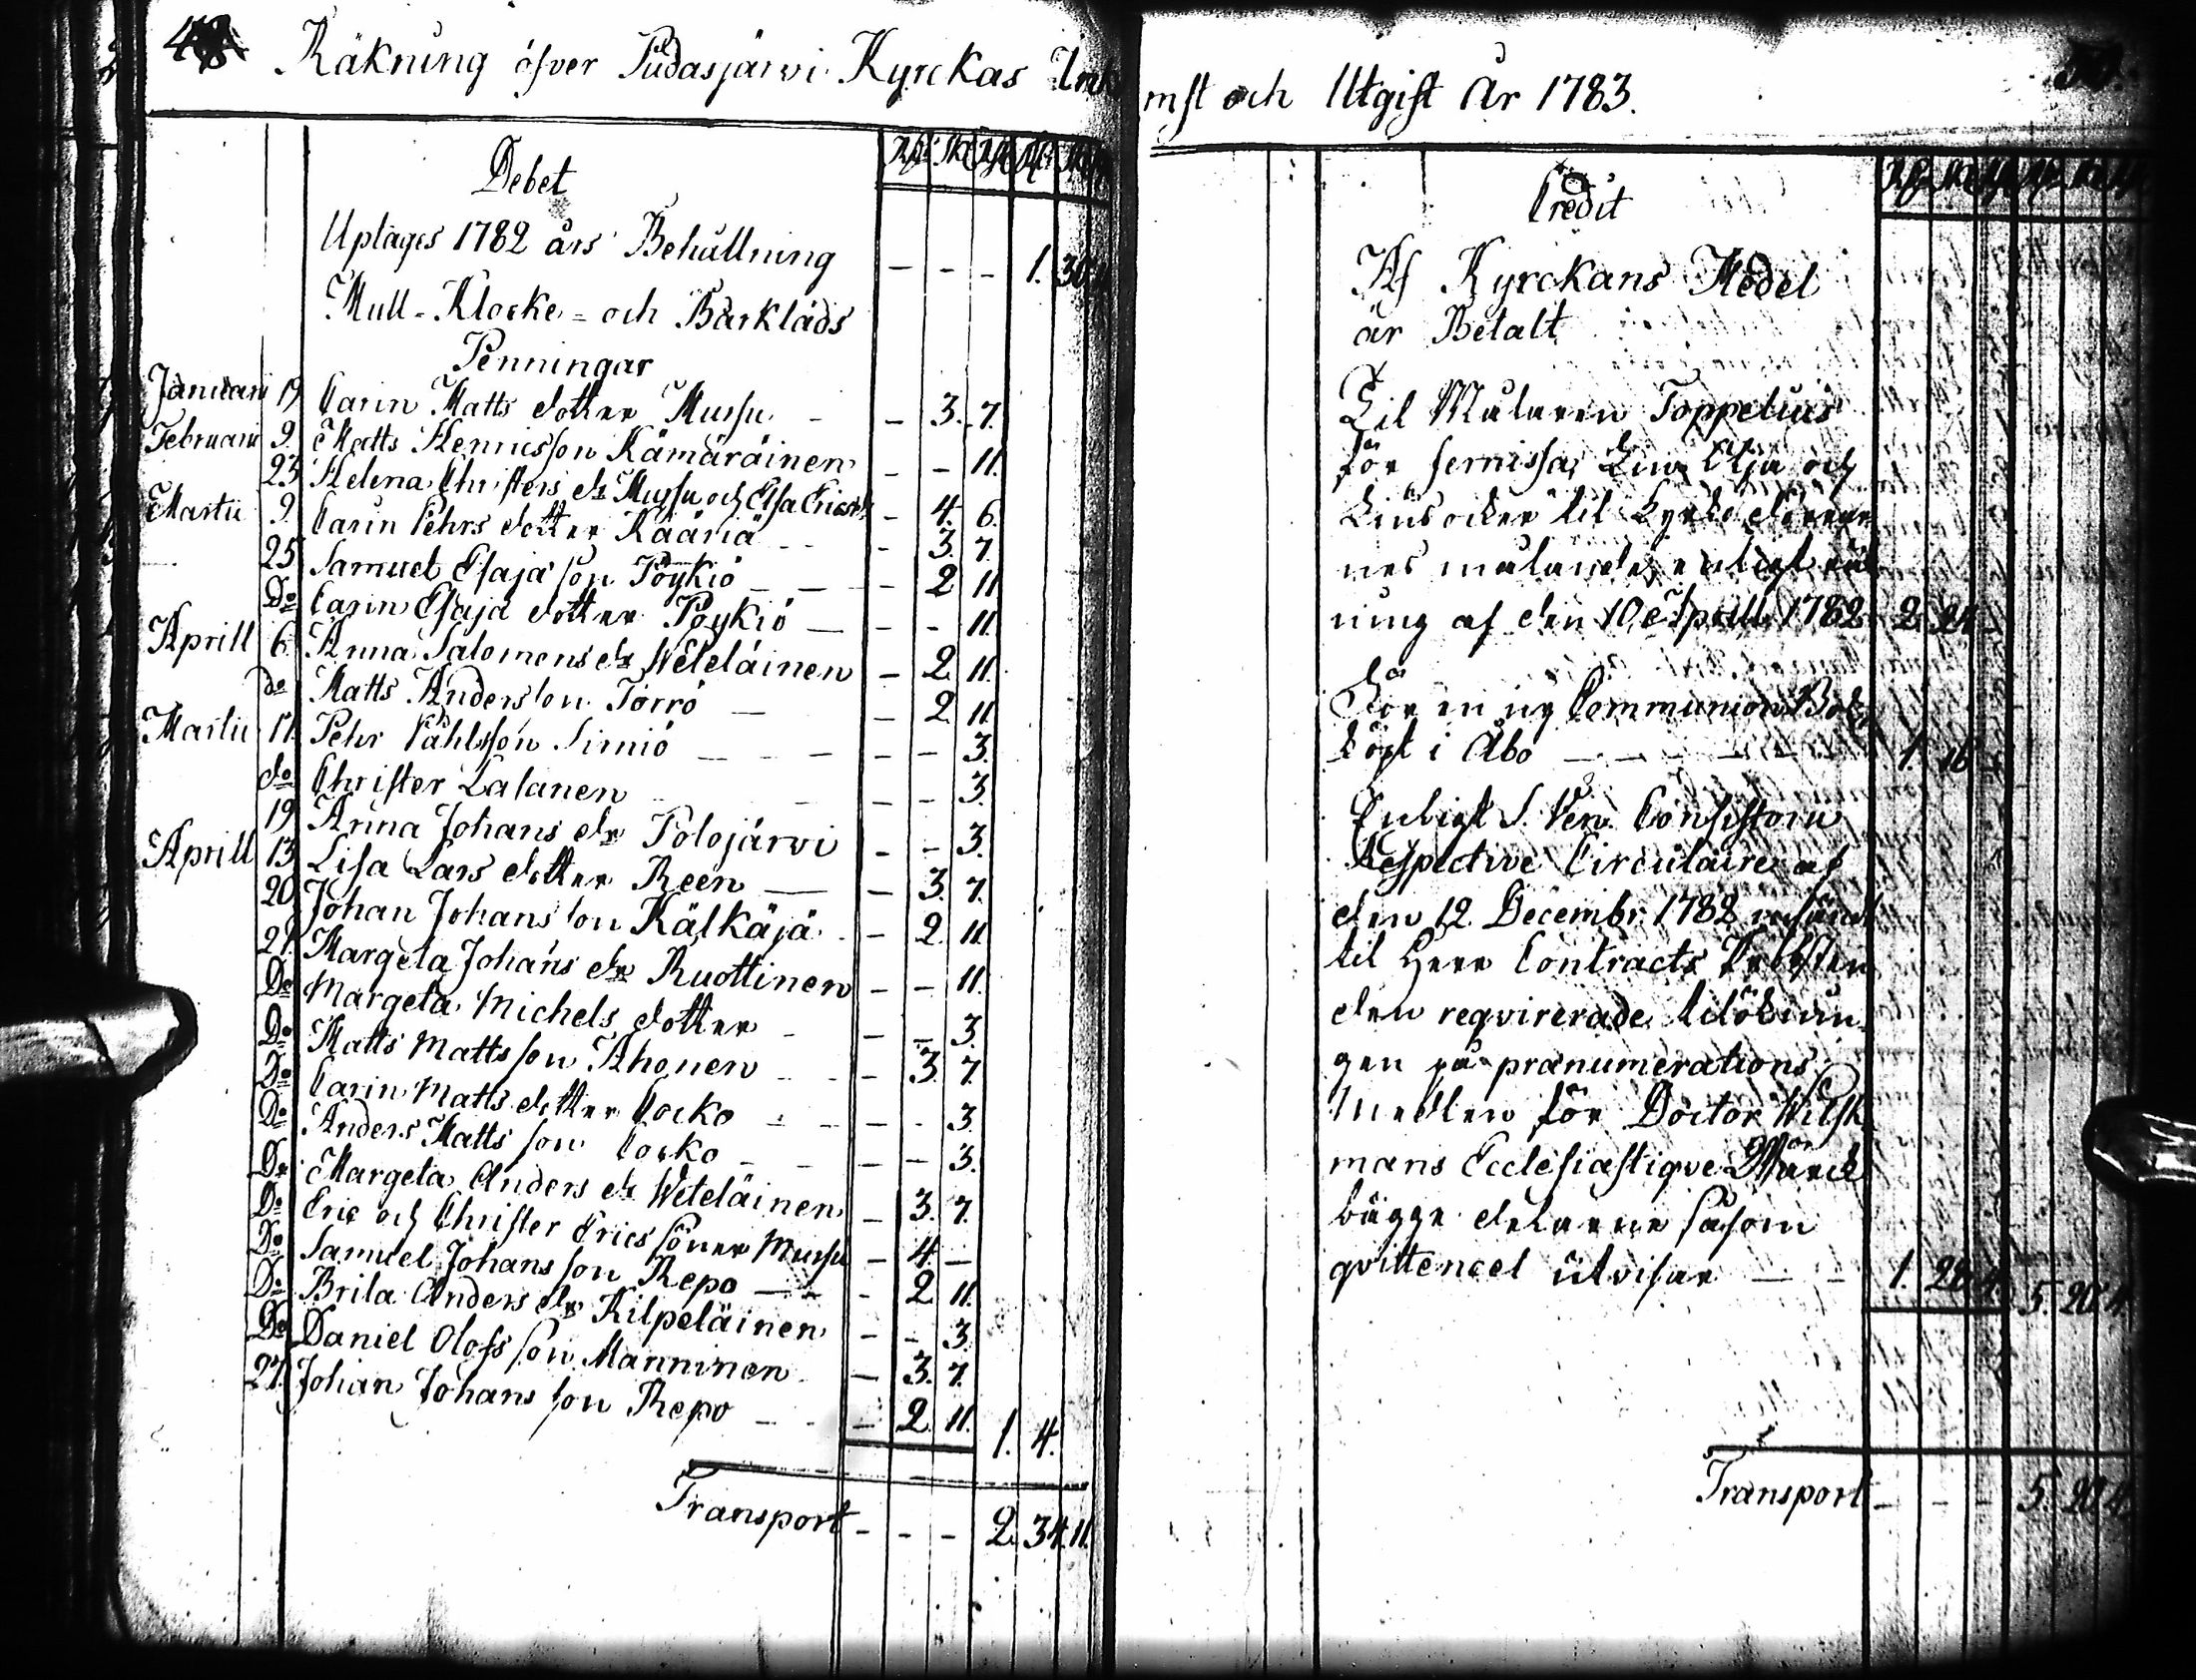 Räkning öfver Pudasjärvi Kyrckas Inkomst och Utgift År 1783.
Debet
Uptages 1782 års Behållning - - - 1. 30
Mull- Klocke- och Bårkläds
Penningar
Januarii 19 Carin Matts dotter Mursu - - 3. 7.
Februarii 9. Matts Henricsson Kämäräinen - - 11.
23 Helena Christers dr Mursu och Elsa - 4. 6.
Martii 9. Carin Pehrs dotter Kääriä - - - 3. 7.
25 Samuel Esaja son Pöykiö - - - 2 11
Do Carin Esaja dotter Pöykiö - - - 11.
Aprill 6 Anna Salomons dr Weteläinen - 2. 11.
do Matts Anderson Törrö - - 2 11
Martii 11. Pehr Påhlsson Simiö - - - - - 3.
do Christer Lalanen - - 3.
19 Anna Johans dr Polojärvi - - 3.
Aprill 13 Lisa Lars dotter Reen - - 3. 7.
20 Johan Johans son Kälkäjä - - 2. 11.
21. Margeta Johans dr Ruottinen - - 11.
Do Margeta Michels dotter - - - 3.
Do Matts Matts son Ahonen - - - 3. 7.
Do Carin Matts dotter Cocko - - - - 3.
Do Anders Matts son Cocko - - - - 3.
Do Margeta Anders dr Weteläinen - 3. 7.
Do Eric och Christer Erics söner Mursu - 4. -
Do Samuel Johans son Repo - - - 2 11.
Do Brita Anders dr Kilpeläinen - - 3.
Do Daniel Olofs son Manninen - 3. 7.
27. Johan Johans son Repo - - - 2 11. 1. 4.
Transport - - - 2. 34. 11.
Credit
Af Kyrckans Medel
är Betalt
Til Målaren Toppelius
för fernissa, Lin Olja och
til Kyrko dörrar
nes målande, enligt räk
ning af den 10 Aprill 1782 2. 24 -
För en ny Communion Bok
köpt i Åbo - - - - - 1. 16 -
Enligt V. Ven. Consistorii
Respective Circulaire af
den 12. Decembr. 1782
til Herr Contracts Probsten
den reqvirerade tilökun
gen på pranumerations
Medlen för Doctor Wilsk
mans Ecclesiastiqve Wärck
bägge delarne såsom
qvittencel utvisar - - 1. 28. 4. 5. 20. 4.
Transport - - - 5. 20 4.